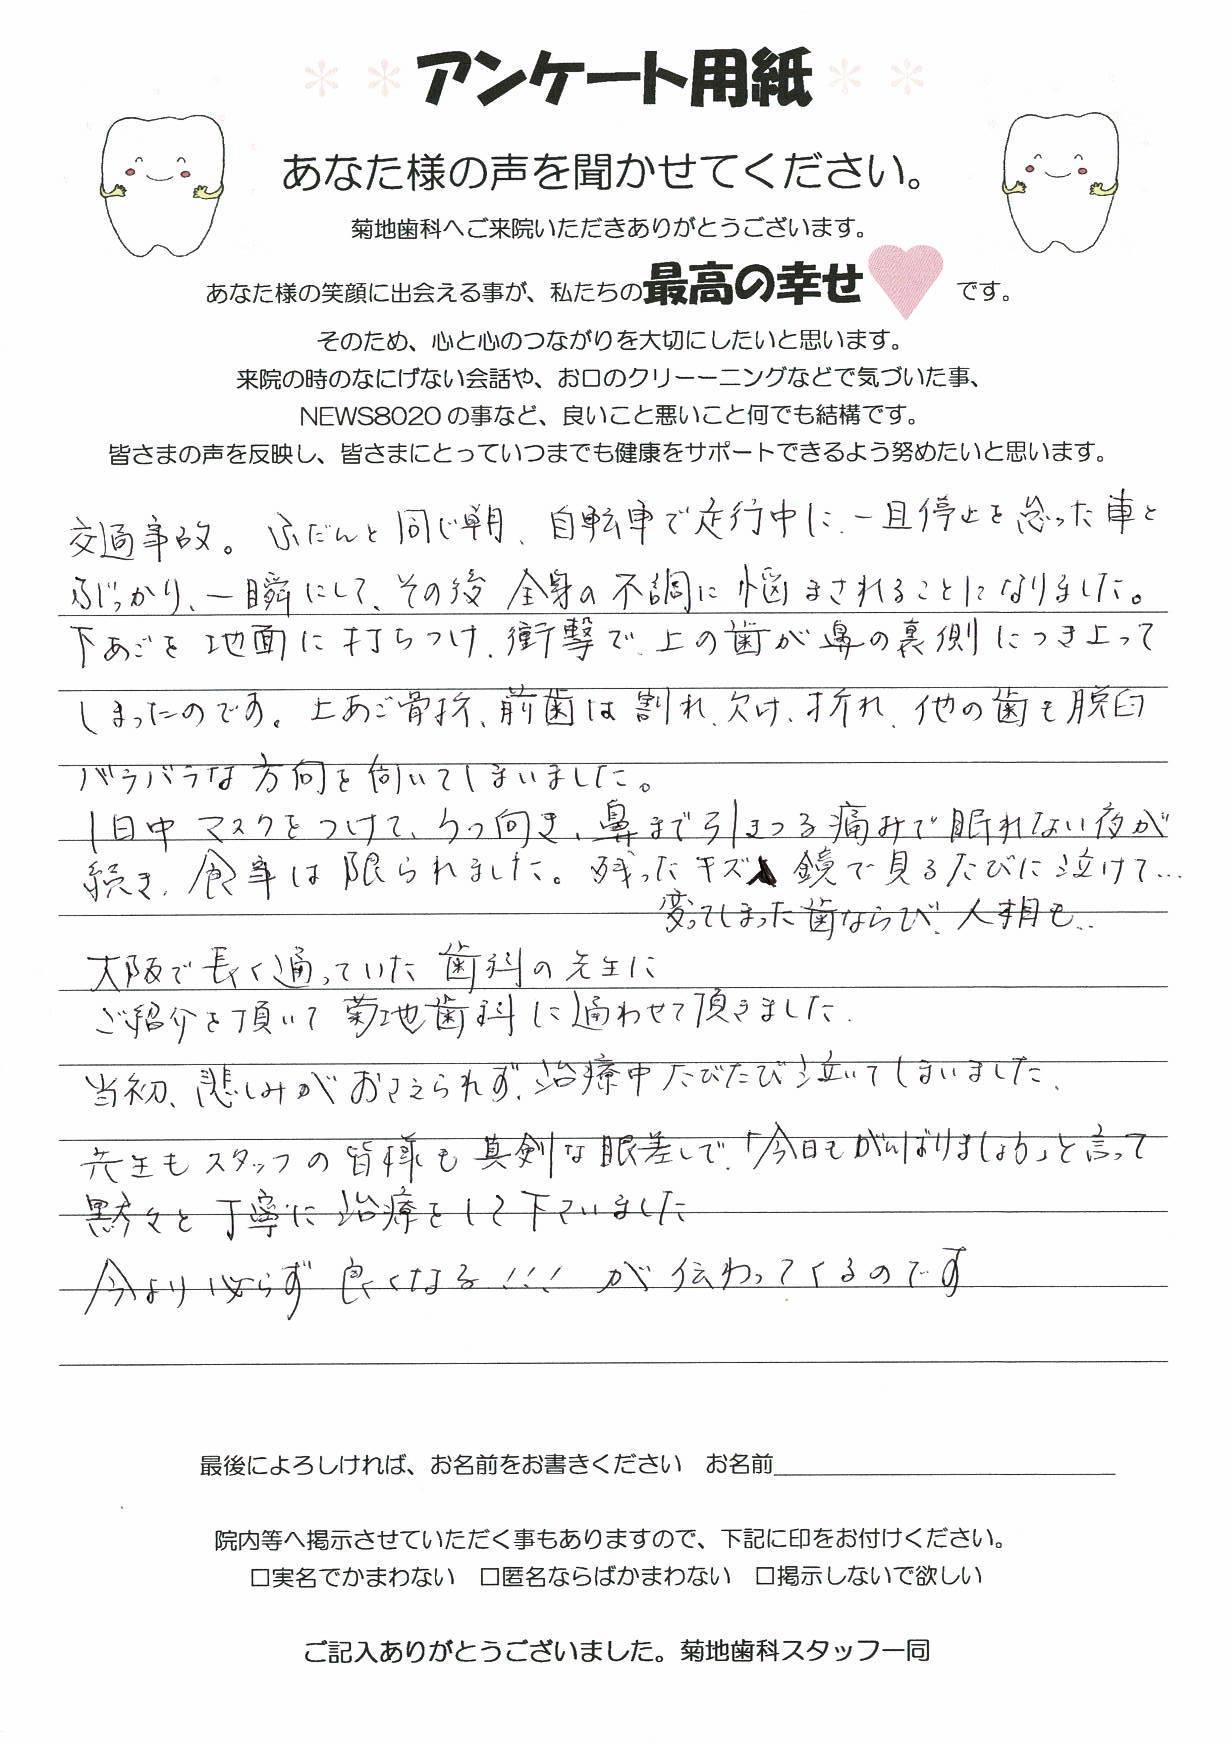 アンケート用紙
あなた様の声を聞かせてください。
菊地歯科へご来院いただきありがとうございます。
あなた様の笑顔に出会える事が、私たちの最高の幸せです。
そのため、心と心のつながりを大切にしたいと思います。
来院の時のなにげない会話や、お口のクリーーニングなどで気づいた事、
NEWS8020の事など、良いこと悪いこと何でも結構です。
皆さまの声を反映し、皆さまにとっていつまでも健康をサポートできるよう努めたいと思います。
交通事故。ふだんと同じ朝、自転車で走行中に、一旦停止を怠った車と
ぶつかり、一瞬にして、その後 全身の不調に悩まされることになりました。
下あごを地面に打ちつけ、衝撃で、上の歯が鼻の裏側につき上って
しまったのです。上あご骨折、前歯は割れ、欠け、折れ、他の歯も脱臼
バラバラな方向を向いてしまいました。
1日中マスクをつけて、うつ向き、鼻まで引きつる痛みで眠れない夜が
続き、食事は限られました。残ったキズ、鏡で見るたびに泣けて…
変ってしまった歯ならび、人相も…
大阪で長く通っていた歯科の先生に
ご紹介を頂いて菊地歯科に通わせて頂きました。
当初、悲しみがおさえられず、治療中たびたび泣いてしまいました。
先生もスタッフの皆様も真剣な眼差しで、「今日もがんばりましょう」と言って
黙々と丁寧に治療をして下さいました
今より必らず良くなる!!! が伝わってくるのです
最後によろしければ、お名前をお書きください お名前
院内等へ掲示させていただく事もありますので、下記に印をお付けください。
□実名でかまわない □匿名ならばかまわない □掲示しないで欲しい
ご記入ありがとうございました。菊地歯科スタッフ一同